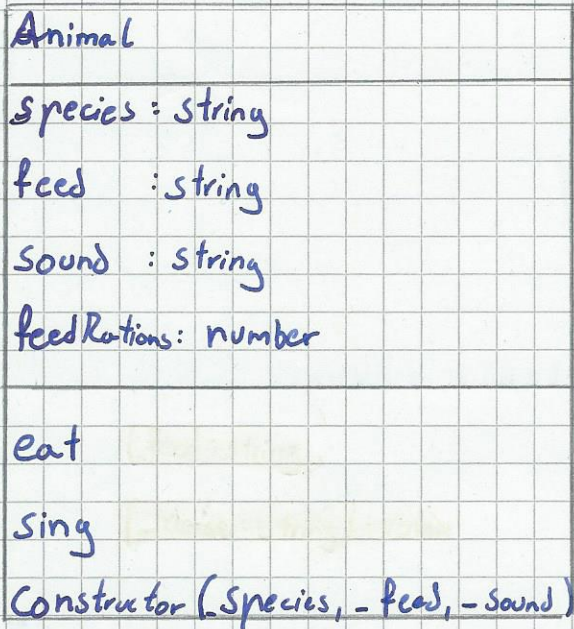 Animal
species : string
feed : string
sound : string
feedRations : number
eat
sing
Constructor (_species, _feed, _sound)